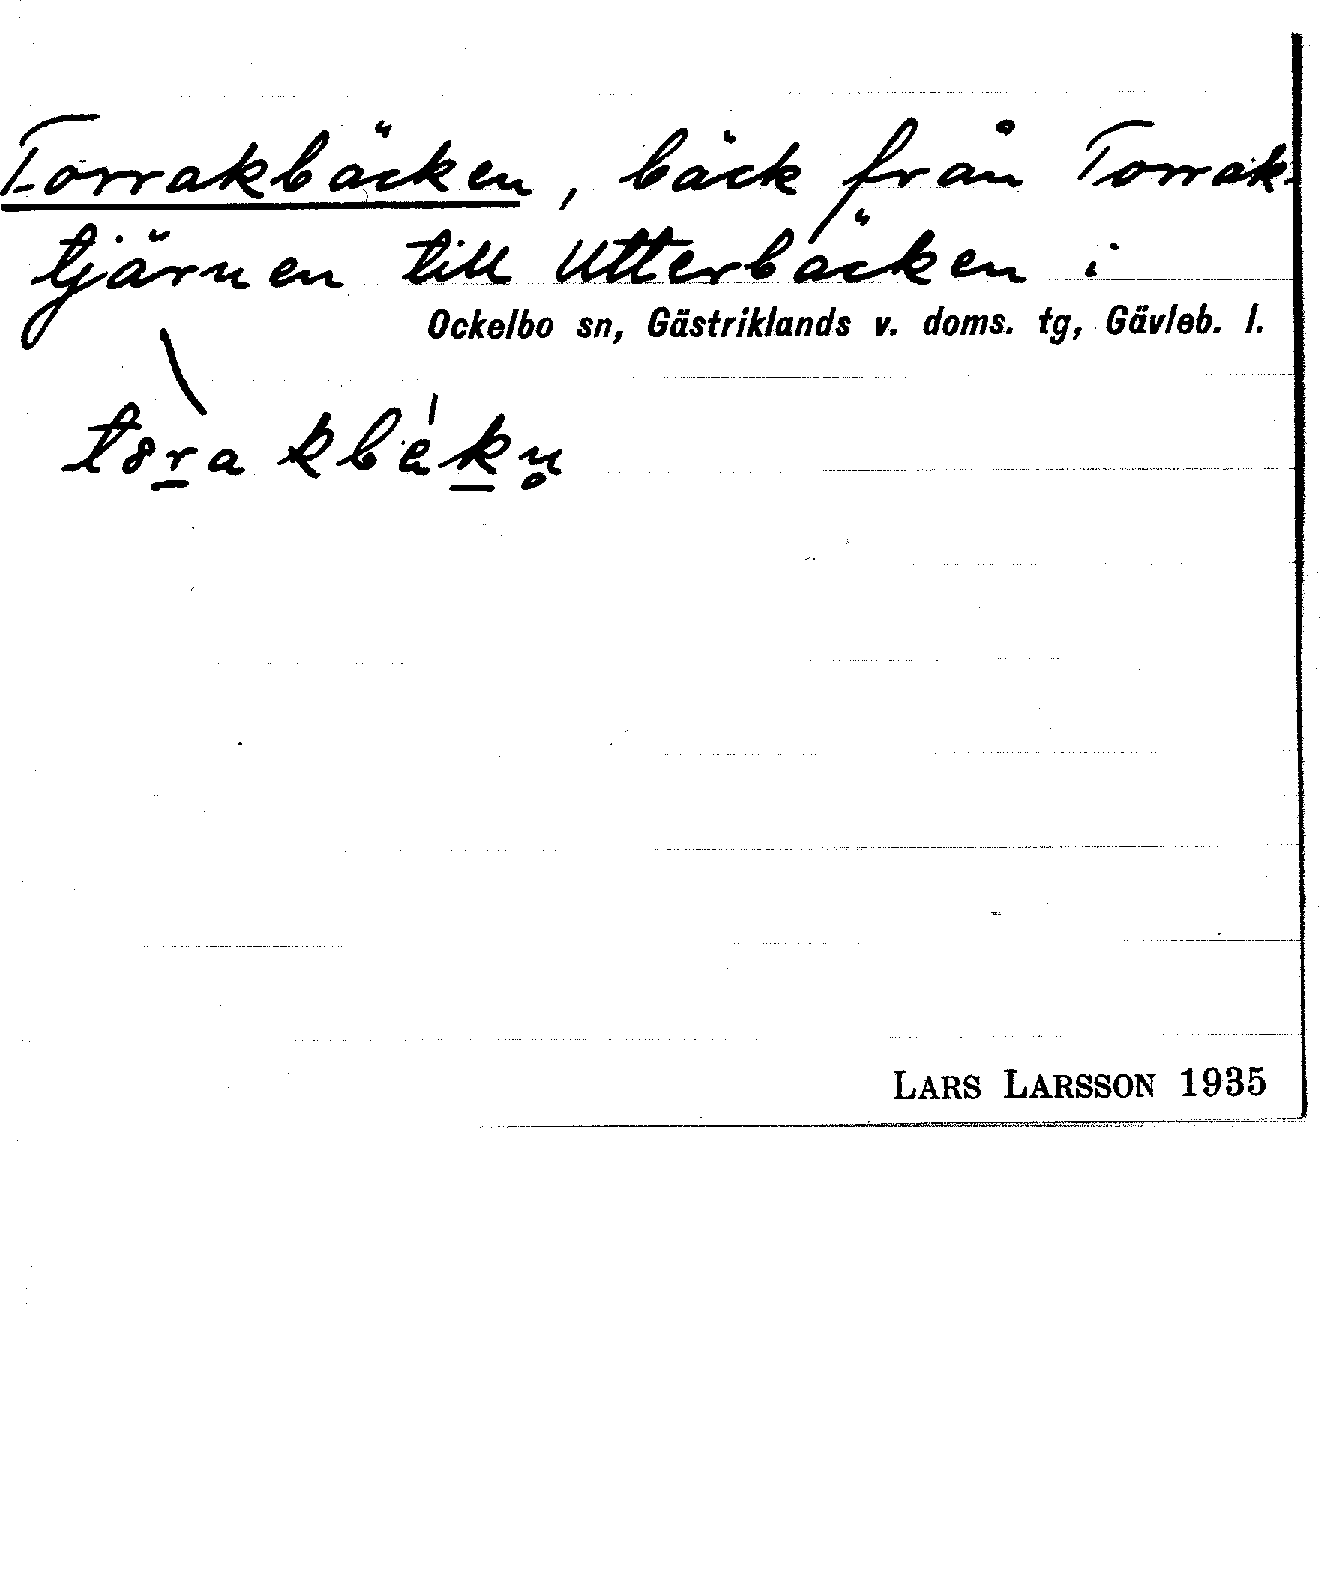 Torrakbäcken, bäck från Torrak-
tjärnen till Utterbäcken i
Ockelbo sn, Gästriklands v. doms. tg, Gävleb. l.
LARS LARSSON 1935